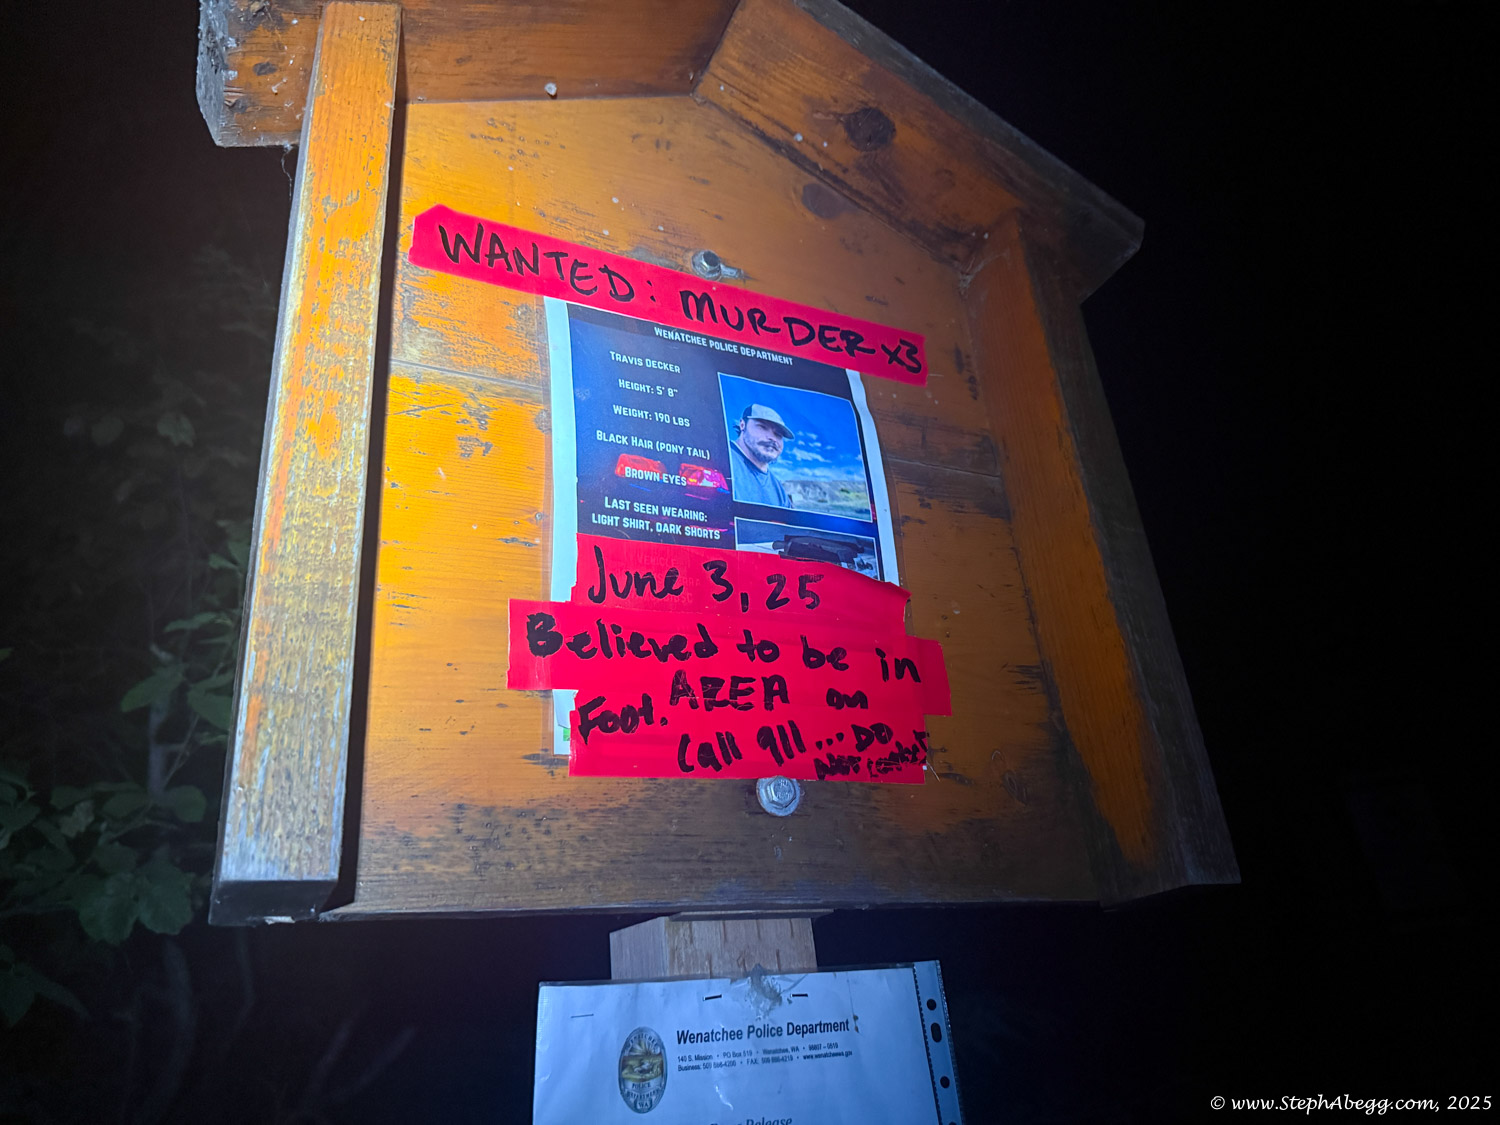 WANTED: MURDER x3
WENATCHEE POLICE DEPARTMENT
TRAVIS DECKER
HEIGHT: 5' 8"
WEIGHT: 190 LBS
BLACK HAIR (PONY TAIL)
BROWN EYES
LAST SEEN WEARING:
LIGHT SHIRT, DARK SHORTS
June 3, 25
Believed to be in
AREA on
Foot.
Call 911... DO
NOT contact
Wenatchee Police Department
140 S. Mission • PO Box 519 • Wenatchee, WA • 98807 – 0519
POLICE
DEPARTMENT
WA
Release
© www.StephAbegg.com, 2025